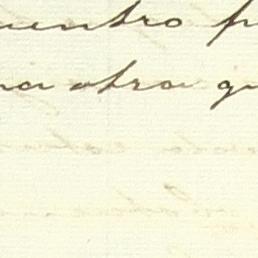 uentro p
na otra qu